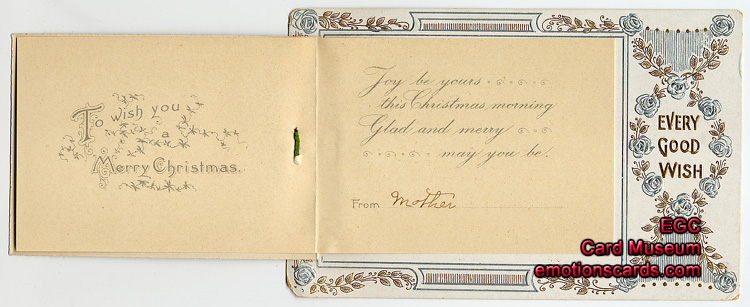 To wish you
a
Merry Christmas.
Joy be yours
this Christmas morning
Glad and merry
may you be.
From Mother
EVERY
GOOD
WISH
EGC
Card Museum
emotionscards.com